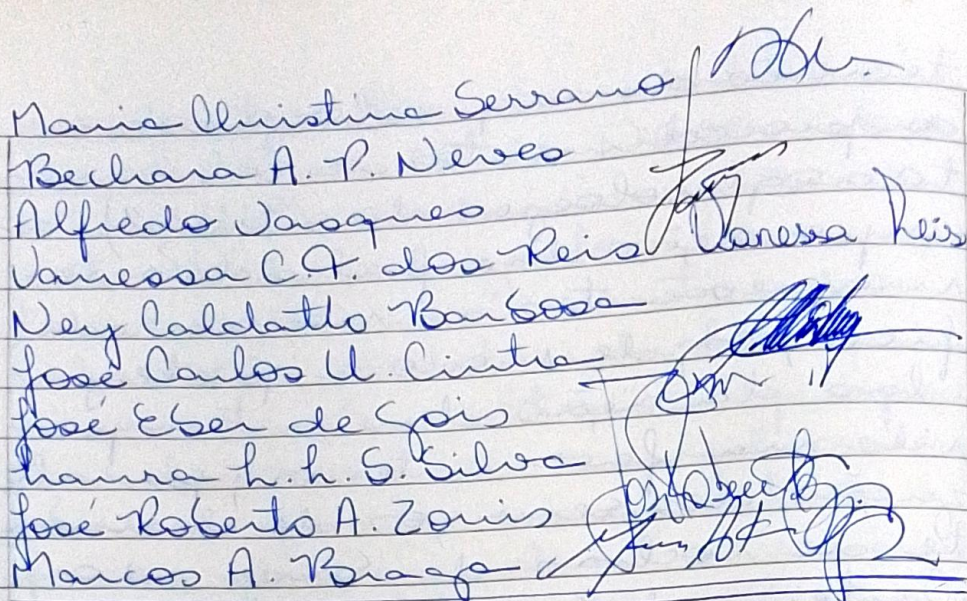 Maria Christina Serrano
Bechara A. P. Neves
Alfredo Vasques
Vanessa C.A. dos Reis Vanessa Reis
Ney Caldatto Barbosa
José Carlos U. Cintra
José Eber de Gois
Laura L. L. S. Silva
José Roberto A. Zonis
Marcos A. Braga